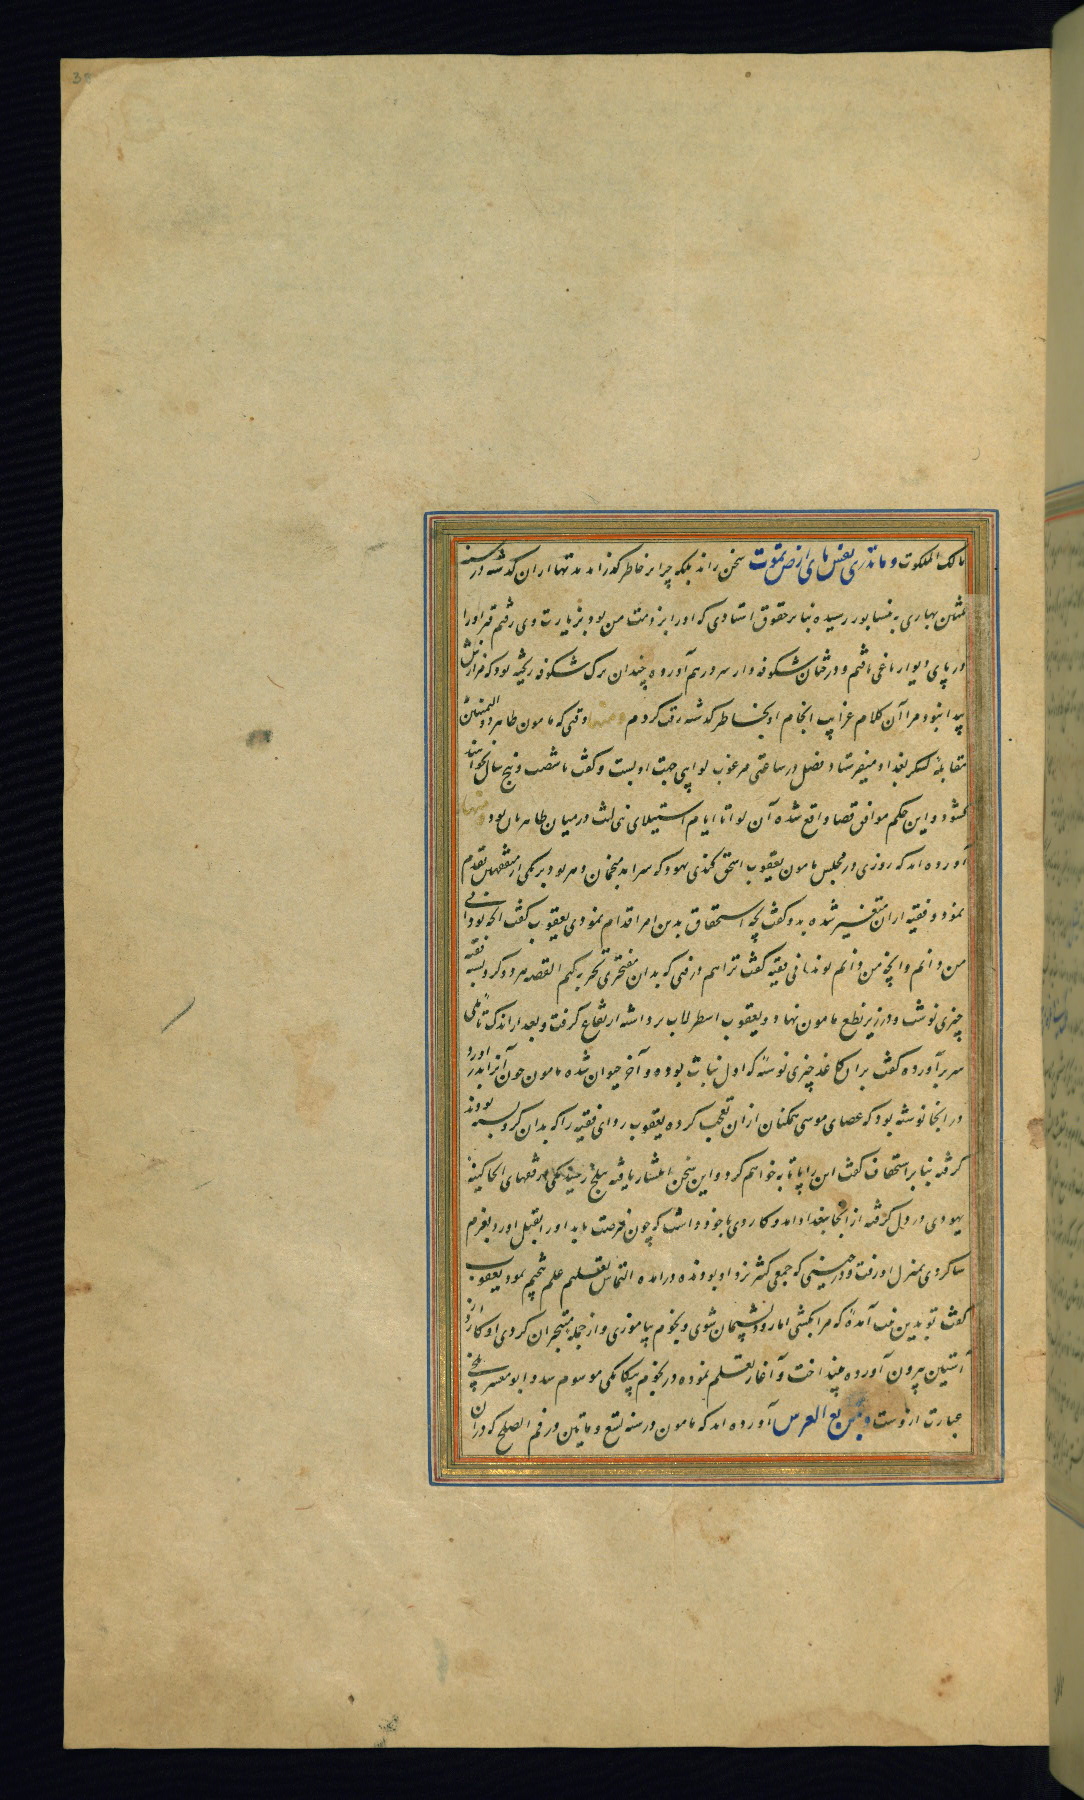 38
مالک الملکوت و ما تدری نفس بای ارض تموت سخن راند بلکه چرا بر خاطر گذراند تنها از ان گذشته در سنه
ثمثین بهاری به نیسابور رسیده بنا بر حقوق استادی که او را بر ذمت من بود بزیارت وی رفتم قبر او را
در پای دیوار باغی یافتم و درختان شکوفه دار سر در هم آورده چندان برک شکوفه ریخته بود که مزارش
پیدا نبود مرا آن کلام غرایب انجام او بخاطر گذشته رقت کردم و منها وقتی که مامون طاهر ذو الیمینین
بمقابله لشکر بغداد میفرستاد فضل در ساعتی مرغوب لوایی جهت او بست و گفت تا شصت و پنج سال نخواهند
گشود و این حکم موافق قضا واقع شده آن لوا تا ایام استیلای بنی لیث در میان طاهریان بود و منها
آورده اند که روزی در مجلس مامون یعقوب اسحق کندی یهود که سرآمد منجمان دهر بود بر یکی از متفقهین تقدم
نمود و فقیه از ان متغیر شده بدو گفت بچه استحقاق بدین امر اقدام نمودی یعقوب گفت انچه تو دانی
من دانم و انچه من دانم تو ندانی فقیه گفت ترا هم در فنی که بدان مفتخری تجربه کنم القصه مرد و کرو بسته فقیه
چیزی نوشت و در زیر نطع مامون نهاد و یعقوب اسطرلاب برداشته ارتفاع گرفت و بعد از اندک تأملی
سر برآورده گفت بران کاغذ چیزی نوشته که اول نبات بوده و آخر حیوان شده مامون چون آنرا بدر آورد
در انجا نوشته بود که عصای موسی همکنان از ان تعجب کرده یعقوب ردای فقیه را که بدان کرو بسته بودند
گرفته بنا بر استخفاف گفت این را پاتابه خواهم کرد و این سخن انتشار یافته ببلخ رسید یکی از فقهای انجا کینه
یهودی در دل گرفته از انجا ببغداد آمد و کاردی با خود داشت که چون فرصت یابد او را بقتل آورد بعزم
شاگردی بمنزل او رفت و در حینی که جمعی کثیر نزد او بودند درآمده التماس تعلیم علم نجوم نمود یعقوب
گفت تو بدین نیت آمده که مرا بکشی اما زود پشیمان شوی و نجوم بیاموزی و از جمله متبحران گردی او کارد از
آستین بیرون آورده بینداخت و آغاز تعلم نموده در نجوم بیکانگی موسوم شد و ابو معشر بلخی
عبارت ازوست و من بدایع العرس آورده اند که مامون در سنه تسع و ماتین در فم الصلح که در ان